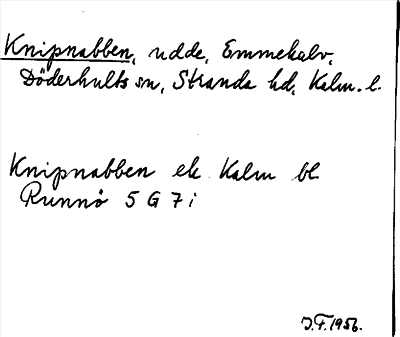 Knipnabben, udde, Emmekalv,
Döderhults sn, Stranda hd, Kalm. l.
Knipnabben ek Kalm bl.
Runnö 5 G 7 i
J.F. 1956.